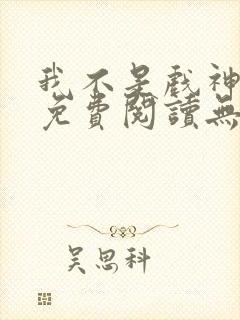 我不是戏神
免費閱讀無
吴思科